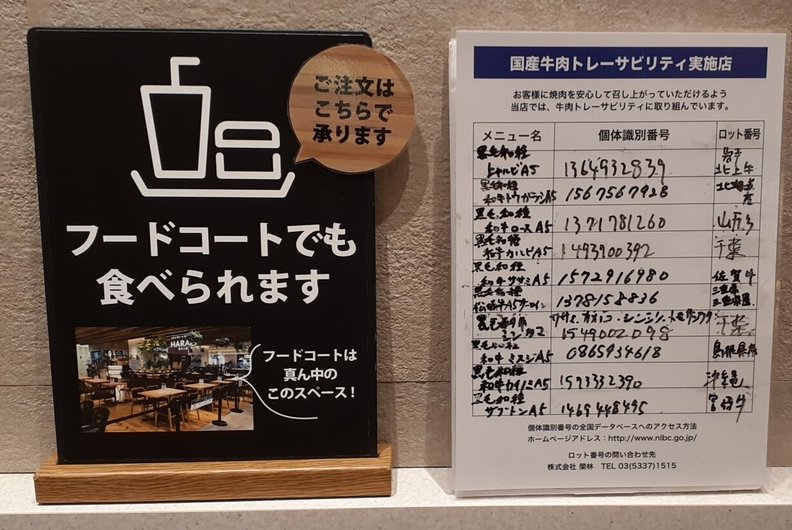 ご注文は
こちらで
承ります
フードコートでも
食べられます
HARA
フードコートは
真ん中の
このスペース!
国産牛肉トレーサビリティ実施店
お客様に焼肉を安心して召し上がっていただけるよう
当店では、牛肉トレーサビリティに取り組んでいます。
メニュー名 個体識別番号 ロット番号
黒毛和種
上カルビA5 1364932839 北上牛
黒毛和種
和牛トウガラシA5 1567567928 北海道産
黒毛和種
和牛ロースA5 1371781260 山形
黒毛和種
和牛カルビA5 1493900392 千葉
黒毛和種
和牛ササミA5 1572916980 佐賀牛
黒毛和種
松阪牛A5サーロイン 1378158836 三重県
ササミ、カイノミ・シンシン・トモサンカク
1549002098 千葉
黒毛和種
和牛ミスジA5 0865934618 島根県産
黒毛和種
和牛カイノミA5 1571332390 沖縄
黒毛和種
ザブトンA5 1469448495 宮崎牛
個体識別番号の全国データベースへのアクセス方法
ホームページアドレス:http://www.nlbc.go.jp/
ロット番号の問い合わせ先
株式会社 榮林 TEL 03(5337)1515